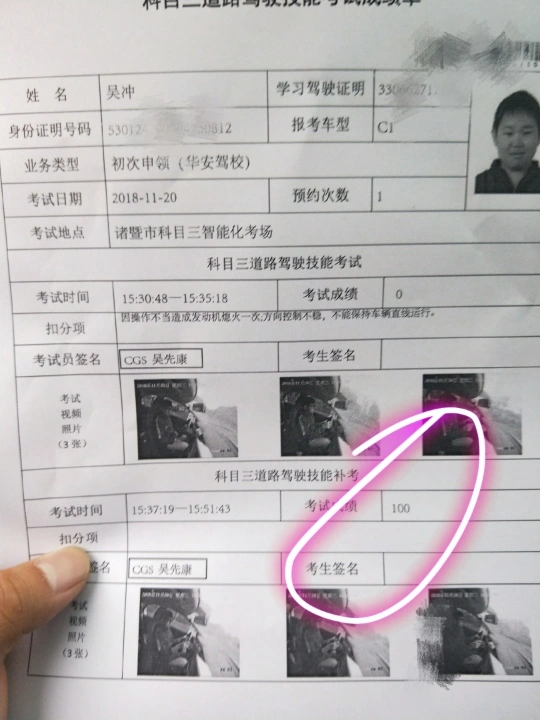 科目三道路驾驶技能考试成绩单
姓 名 吴冲 学习驾驶证明
身份证明号码 报考车型 C1
业务类型 初次申领（华安驾校）
考试日期 2018-11-20 预约次数 1
考试地点 诸暨市科目三智能化考场
科目三道路驾驶技能考试
考试时间 15:30:48—15:35:18 考试成绩 0
扣分项 因操作不当造成发动机熄火一次,方向控制不稳，不能保持车辆直线运行。
考试员签名 CGS 吴先康 考生签名
考试
视频
照片
（3 张）
科目三道路驾驶技能补考
考试时间 15:37:19—15:51:43 考试成绩 100
扣分项
签名 CGS 吴先康 考生签名
考试
视频
照片
（3 张）